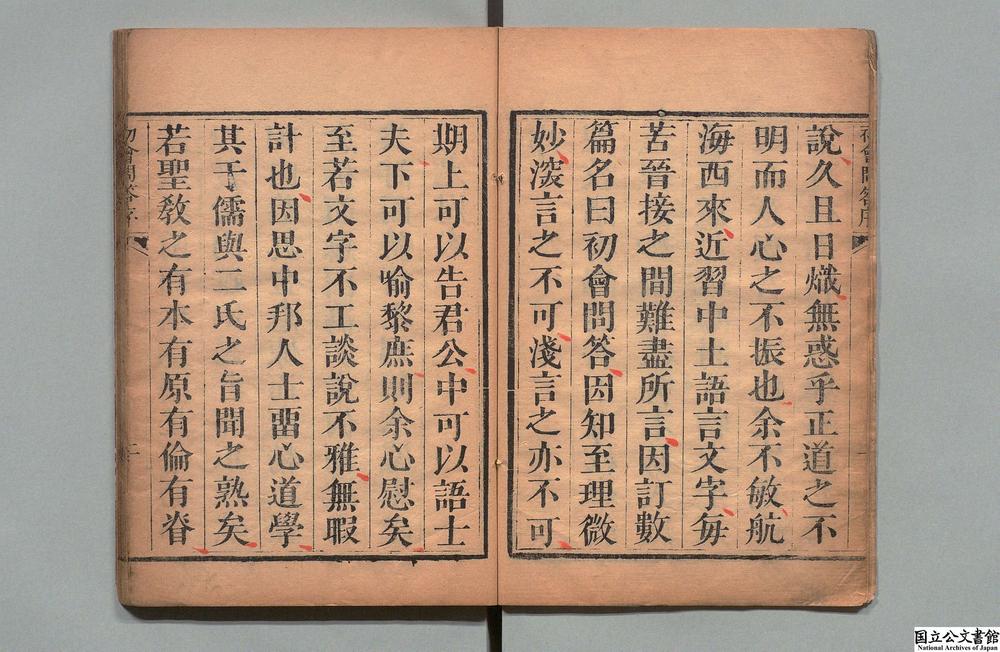 說久且日熾無惑乎正道之不
明而人心之不振也余不敏航
海西來近習中土語言文字每
苦晉接之間難盡所言因訂數
篇名曰初會問答因知至理微
妙深言之不可淺言之亦不可
初會問答序
一
期上可以告君公中可以語士
夫下可以喻黎庶則余心慰矣
至若文字不工談說不雅無暇
計也因思中邦人士留心道學
其于儒與二氏之旨聞之熟矣
若聖教之有本有原有倫有脊
初會問答序
国立公文書館
National Archives of Japan